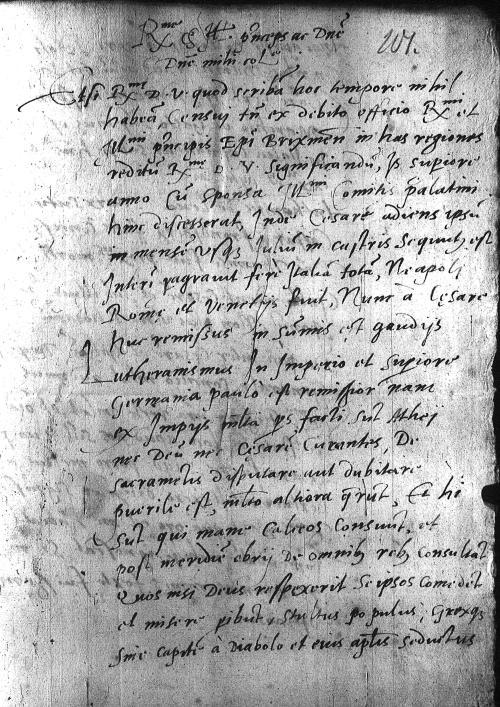 Rme et Ill. pnceps ac Dne
Dne mihi col.
201.
Etsi Rme D. V. quod scribã hoc tempore nihil
habeã, Censui tñ ex debito officio Rmi et
Illmi pncipis Epi Brixineñ in has regiones
reditũ Rme D V. Significandũ, Is supiore
anno Cũ Sponsa Illmi Comitis palatini
hinc discesserat, Inde Cesarẽ adiens ipsũ
in mensẽ usqʒ Juliũ in castris sequut9 est
Interĩ vagavit ferè Italiã totã, Neapoli
Romę et Venetijs fuit, Nunc à Cesare
huc remissus in sũmis est gaudijs
Lutheranismus In Imperio et supiore
Germania paulò est remissior nam
ex Impijs mlta ps facti sũt Athei
nec Deũ nec Cesarẽ Curantes, De
sacramẽtis disputare aut dubitare
puerile est, mlto altiora qrũt, Et hi
sũt qui mane Calceos Consuũt, et
post meridiẽ ebrij De omnibʒ rebʒ Consultãt
Quos nisi Deus respexerit Seipsos Comedẽt
et miserè pibũt, Stultus populus, Grexqʒ
sine capite à Diabolo et eius aplis seductus